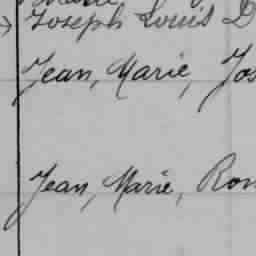 Joseph Louis D
Jean, Marie, Jos
Jean, Marie, Ron